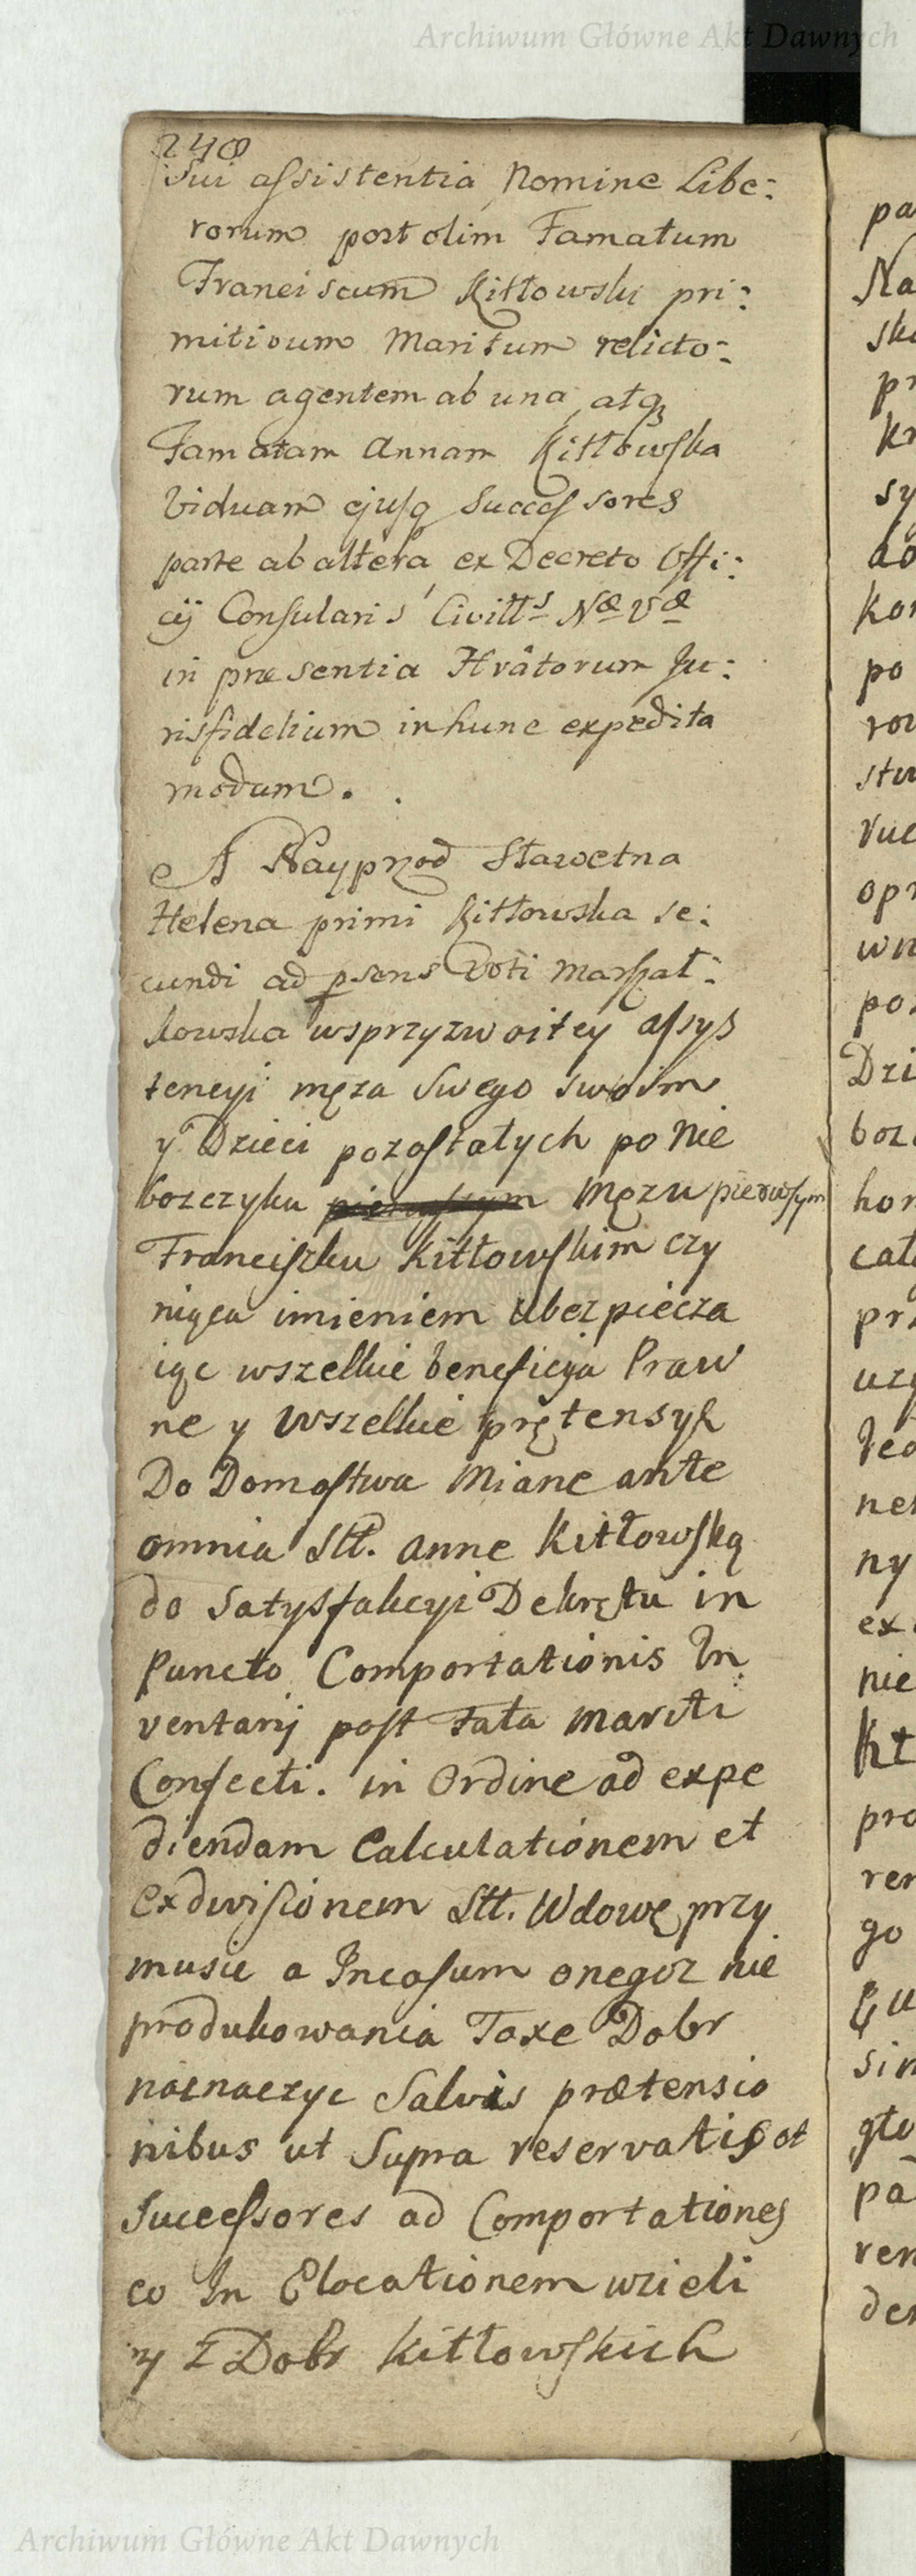 Archiwum Główne Akt Dawnych
240
Sui assistentia Nomine Libe:
rorum post olim Famatum
Franciscum Kitłowski pri:
mitivum Maritum relicto:
rum agentem ab una atq
Famatam Annam Kitłowska
Viduam ejusq Successores
parte ab altera ex Decreto Offi:
cij Consularis Civitts Næ Væ
in præsentia Hrâtorum Ju:
risfidelium in hunc expedita
modum.
A Nayprzod Sławetna
Helena primi Kitłowska se:
cundi ad psens Voti Marszał:
kowska w sprzyzwoitey assys
tencyi męża Swego swoim
y Dzieci pozostałych po Nie
boszczyku pierwszym Mężu pierwszym
Franciszku Kittowskim czy
niąca imieniem Ubezpiecza
iąc wszelkie beneficya Praw
ne y Wszelkie prętensye
Do Domostwa Miane ante
omnia Stt. Anne Kitłowską
do Satysfakcyi Dekrętu in
Puncto Comportationis In
ventarij post Fata mariti
Confecti. in Ordine ad expe
diendam Calculationem et
Exdivisionem Stt. Wdowę przy
music a Incasum onegoz nie
produkowania Taxe Dobr
naznaczyc Salvis prætensio
nibus ut Supra reservatis et
Successores ad Comportationes
eo In Elocationem wzieli
y z Dobr Kittowskich
pa
Na
sk
pr
kr
sy
do
kon
po
roz
stw
rue
opr
wn
poz
Dzi
boz
hon
cał
prz
uzy
Teo
nel
ny
ex
nie
Kt
pro
ren
go
sin
gło
pa
ren
den
Archiwum Główne Akt Dawnych